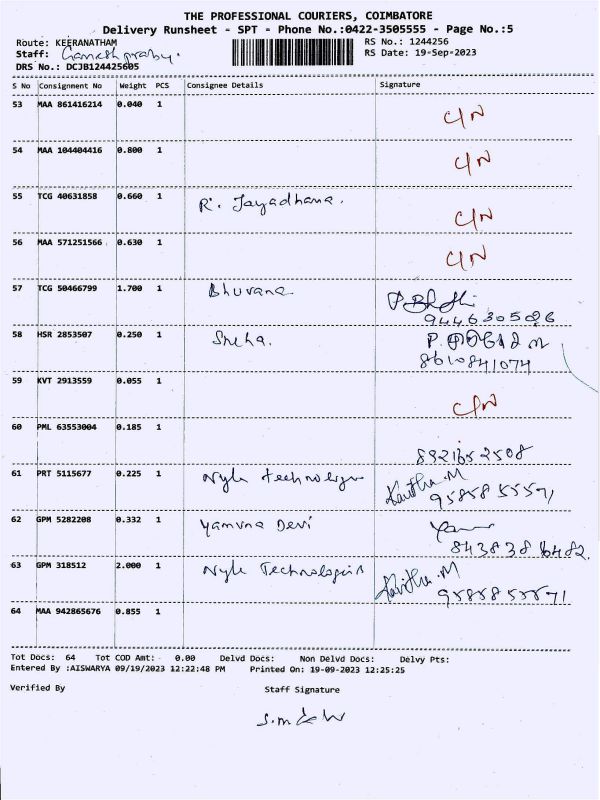 THE PROFESSIONAL COURIERS, COIMBATORE
Delivery Runsheet - SPT - Phone No.:0422-3505555 - Page No.:5
Route: KEERANATHAM
RS No.: 1244256
Staff: Ganesh prabu.
RS Date: 19-Sep-2023
DRS No.: DCJB124425605
S No Consignment No Weight PCS Consignee Details Signature
53 MAA 861416214 0.040 1 C/N
54 MAA 104404416 0.800 1 C/N
55 TCG 40631858 0.660 1 R. Jayadhana. C/N
56 MAA 571251566 0.630 1 C/N
57 TCG 50466799 1.700 1 Bhuvana
9446305026
58 HSR 2853507 0.250 1 Sneha.
8610841074
59 KVT 2913559 0.055 1 C/N
60 PML 63553004 0.185 1
8921652508
61 PRT 5115677 0.225 1 Nyle Kavitha.M
9585855571
62 GPM 5282208 0.332 1 Yamuna Devi
63 GPM 318512 2.000 1 Nyle Kavitha.M
9585855571
64 MAA 942865676 0.855 1
Tot Docs: 64 Tot COD Amt: 0.00 Delvd Docs: Non Delvd Docs: Delvy Pts:
Entered By :AISWARYA 09/19/2023 12:22:48 PM Printed On: 19-09-2023 12:25:25
Verified By Staff Signature